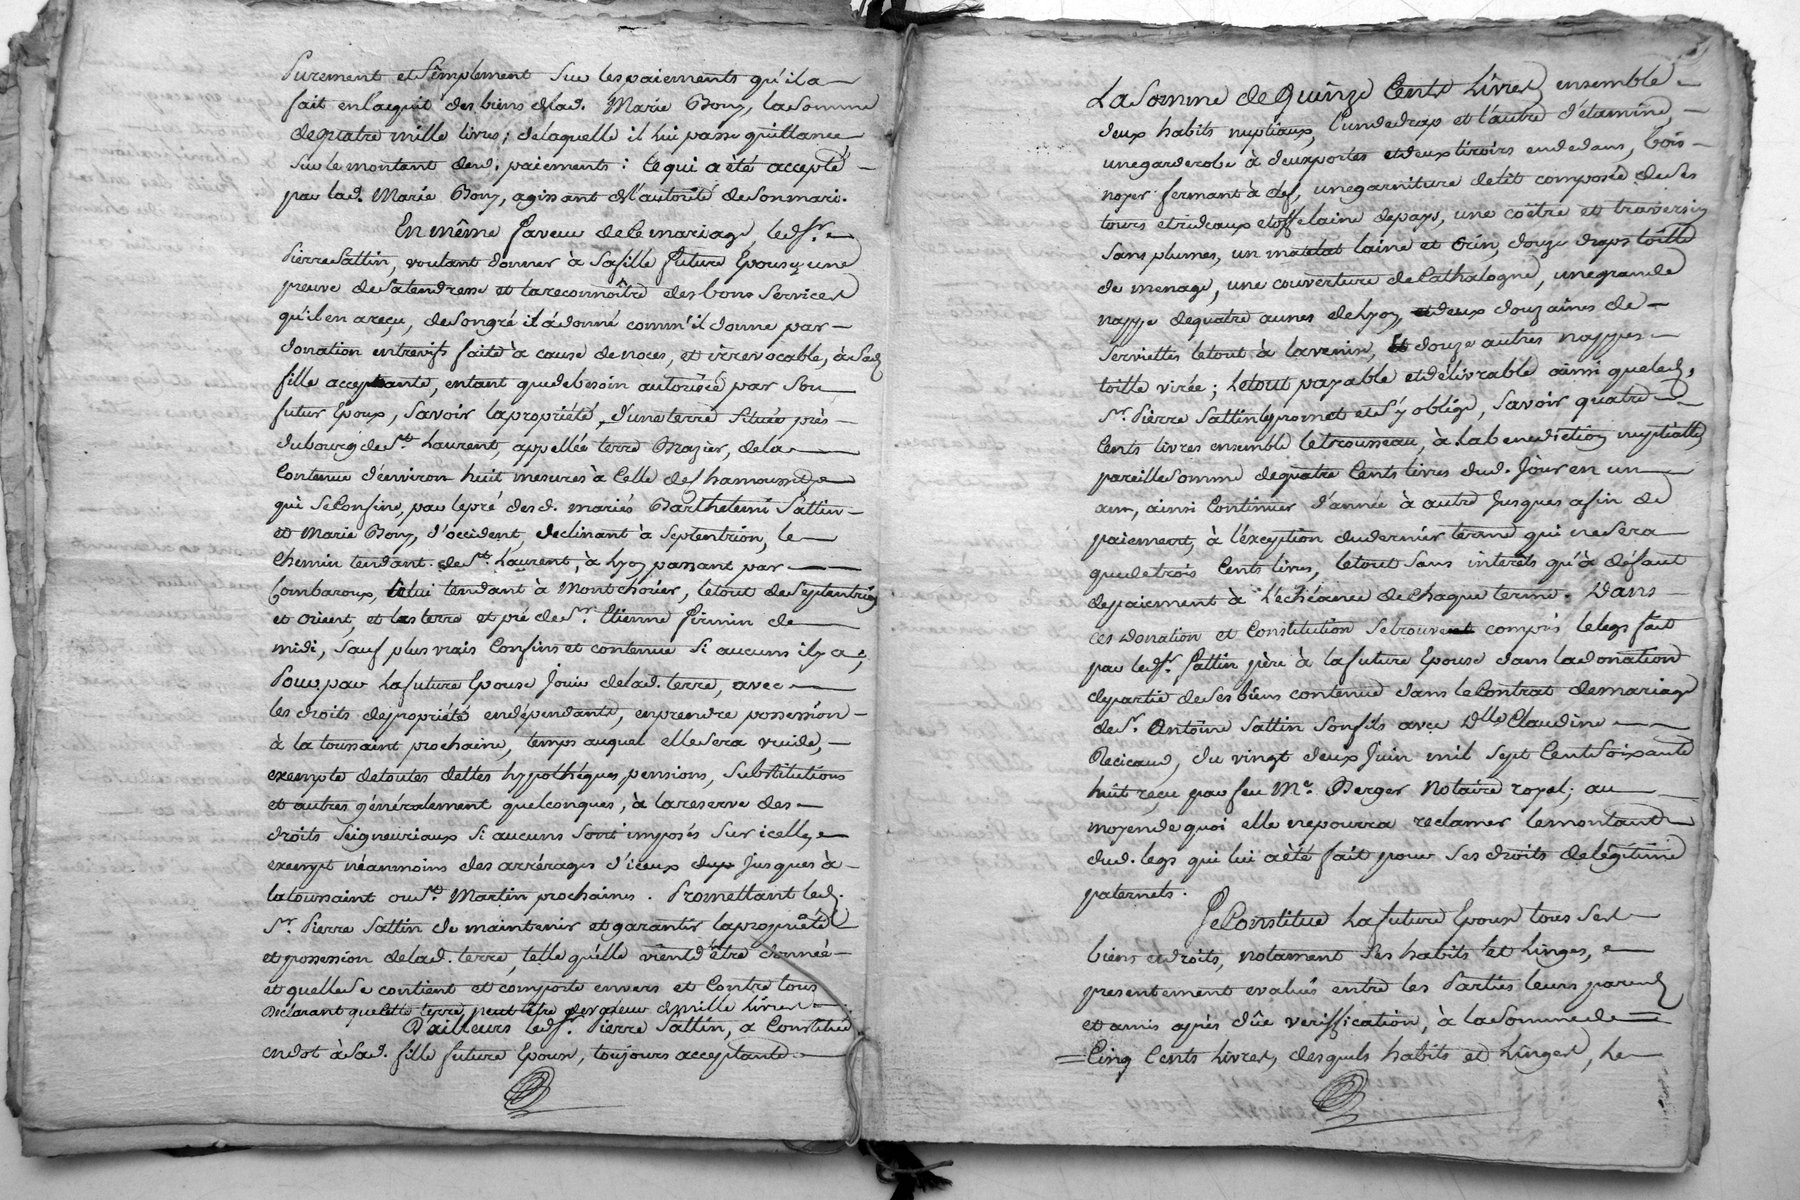 Purement et Simplement Sur les paiements qu'il a
fait en l'acquit des biens de lad. Marie Bony, la Somme
de quatre mille livres; de laquelle il lui passe quittance
Sur le montant desd. paiements: Ce qui a été accepté
par lad. Marie Bony, agissant de l'autorité de Son mari.
En même faveur de Ce mariage, led. Sr.
Pierre Sattin, voulant donner à Sa fille future Epouse, une
preuve de Sa tendresse et la reconnoître des bons Services
qu'il en a reçu, de Son gré il a donné comm'il donne par
donation entrevifs faite à cause de noces, et irrevocable, à Sad.
fille acceptante, entant que de besoin autorisée par Son
futur Epoux, Savoir la propriété, d'une terre Située près
du bourg de St. Laurent, appellée terre Mazier, de la
Contenue d'environ huit mesures à Celle de Chamousset,
qui Se Confine, par le pré desd. mariés Barthelemi Sattin
et Marie Bony, d'occident, declinant à Septentrion, le
Chemin tendant de St. Laurent, à Lyon passant par
Combaroux, Celui tendant à Montchorier, le tout de Septentrion
et orient, et les terre et pré de Sr. Etienne Firmin de
midi, Sauf plus vrais Confins et contenue Si aucuns il y a;
Pour par La future Epouse Jouir de lad. terre, avec
les droits de propriété en dépendants, en prendre possession
à la toussaint prochaine, temps auquel elle Sera vuide,
exempte de toutes dettes hypothéques, pensions, Substitutions
et autres généralement quelconques, à la reserve des
droits Seigneuriaux Si aucuns Sont imposés Sur icelle,
exempt néanmoins des arrérages d'iceux Jusques à
la toussaint ou St. Martin prochaines. Promettant led.
Sr. Pierre Sattin de maintenir et garantir la propriété
et possession de lad. terre, telle qu'elle vient d'être donnée
et quelle Se contient et comporte envers et Contre tous
Déclarant que cette terre, peut être de valeur de mille Livres
D'ailleurs led. Sr. Pierre Sattin, a Constitué
en dot à Sad. fille future Epouse, toujours acceptante
La Somme de Quinze Cents Livres, ensemble
deux habits nuptiaux, l'un de drap et l'autre d'étamine,
une garderobe à deux portes et deux tiroirs en dedans, bois
noyer fermant à clef, une garniture de lit composée de Ses
tours et rideaux etoffe laine de pays, une coëtre et traversin
Sans plumes, un matelat laine et Crin, douze draps toille
de menage, une couverture de Cathalogne, une grande
nappe de quatre aunes de Lyon, deux douzaines de
Serviettes le tout à la venise, et douze autres nappes
toille virée; Le tout payable et délivrable ainsi que led.
Sr. Pierre Sattin le promet et S'y oblige, Savoir quatre
Cents livres ensemble le trousseau, à La benediction nuptiale,
pareille Somme de quatre Cents livres dud. Jour en un
an, ainsi Continuer d'année à autre Jusques a fin de
paiement, à l'éxception du dernier terme qui ne Sera
que de trois Cents livres, le tout Sans interêts qu'à défaut
de paiement à l'échéance de chaque terme. Dans
Ces Donation et Constitution Se trouve compris le legs fait
par led. Sr. Sattin père à la future Epouse dans la donation
de partie de Ses biens contenue dans le Contrat de mariage
de Sr. Antoine Sattin Son fils avec Dlle. Claudine
du vingt deux Juin mil Sept Cent Soixante
huit reçu par feu Me. Berger Notaire royal; au
moyen de quoi elle ne pourra reclamer le montant
dud. legs qui lui a été fait pour Ses droits de légitime
paternels.
Se Constitue La future Epouse tous Ses
biens et droits, notament Ses habits et Linges,
presentement evalués entre les Parties leurs parents
et amis après dûe veriffication, à la Somme de
Cinq Cents Livres, desquels habits et Linges, Le